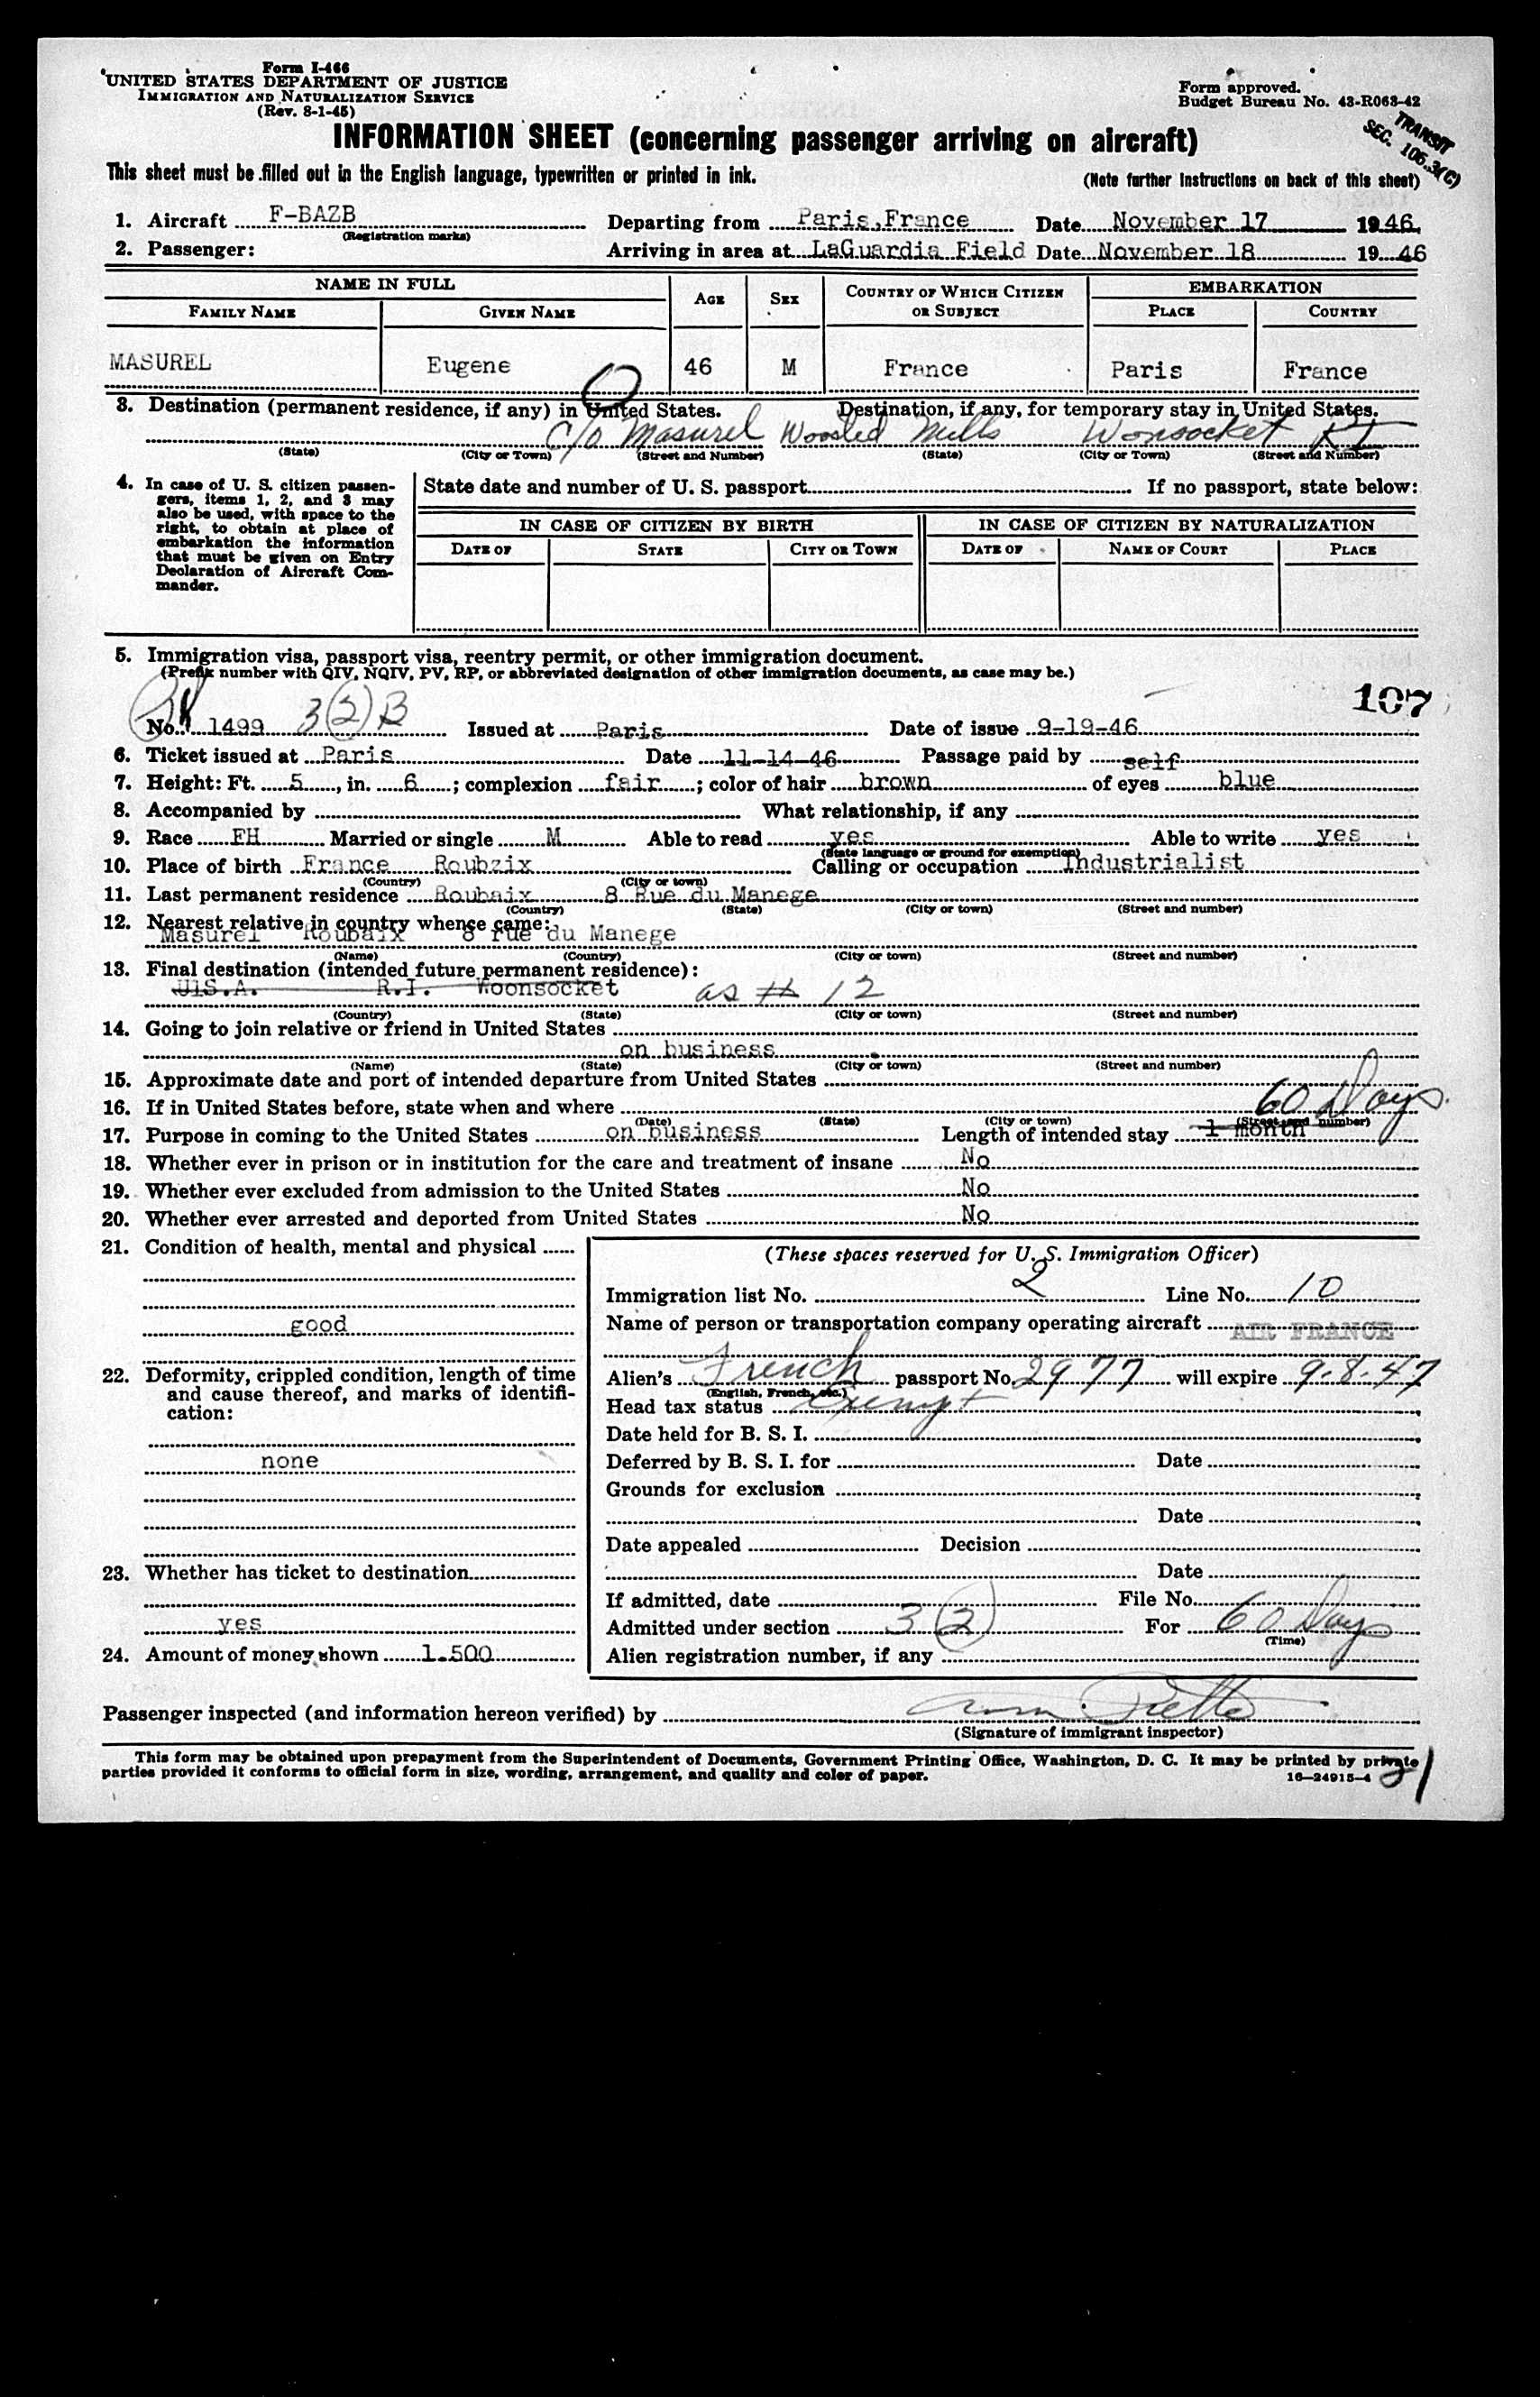 Form I-466
UNITED STATES DEPARTMENT OF JUSTICE
IMMIGRATION AND NATURALIZATION SERVICE
(Rev. 8-1-45)
Form approved.
Budget Bureau No. 43-R063-42
TRANSIT
SEC. 106.3(C)
INFORMATION SHEET (concerning passenger arriving on aircraft)
This sheet must be filled out in the English language, typewritten or printed in ink. (Note further instructions on back of this sheet)
1. Aircraft F-BAZB Departing from Paris,France Date November 17 1946
(Registration marks)
2. Passenger: Arriving in area at LaGuardia Field Date November 18 19 46
NAME IN FULL AGE SEX COUNTRY OF WHICH CITIZEN OR SUBJECT EMBARKATION
FAMILY NAME GIVEN NAME PLACE COUNTRY
MASUREL Eugene 46 M France Paris France
3. Destination (permanent residence, if any) in United States. Destination, if any, for temporary stay in United States.
c/o Masurel Woosted Mills Wonsocket RI
(State) (City or Town) (Street and Number) (State) (City or Town) (Street and Number)
4. In case of U. S. citizen passengers, items 1, 2, and 3 may also be used, with space to the right, to obtain at place of embarkation the information that must be given on Entry Declaration of Aircraft Commander.
State date and number of U. S. passport If no passport, state below:
IN CASE OF CITIZEN BY BIRTH IN CASE OF CITIZEN BY NATURALIZATION
DATE OF STATE CITY OR TOWN DATE OF NAME OF COURT PLACE
5. Immigration visa, passport visa, reentry permit, or other immigration document.
(Prefix number with QIV, NQIV, PV, RP, or abbreviated designation of other immigration documents, as case may be.)
107
No. 1499 3(2)B Issued at Paris Date of issue 9-19-46
6. Ticket issued at Paris Date 11-14-46 Passage paid by self
7. Height: Ft. 5, in. 6; complexion fair; color of hair brown of eyes blue
8. Accompanied by What relationship, if any
9. Race FH Married or single M Able to read yes Able to write yes
(State language or ground for exemption)
10. Place of birth France Roubzix Calling or occupation Industrialist
(Country) (City or town)
11. Last permanent residence Roubaix 8 Rue du Manege
(Country) (State) (City or town) (Street and number)
12. Nearest relative in country whence came:
Masurel Roubaix 8 rue du Manege
(Name) (Country) (City or town) (Street and number)
13. Final destination (intended future permanent residence):
U.S.A. R.I. Woonsocket as # 12
(Country) (State) (City or town) (Street and number)
14. Going to join relative or friend in United States
on business
(Name) (State) (City or town) (Street and number)
15. Approximate date and port of intended departure from United States
16. If in United States before, state when and where 60 Days
(Date) (State) (City or town) (Street and number)
17. Purpose in coming to the United States on business Length of intended stay 1 month
18. Whether ever in prison or in institution for the care and treatment of insane No
19. Whether ever excluded from admission to the United States No
20. Whether ever arrested and deported from United States No
21. Condition of health, mental and physical
good
22. Deformity, crippled condition, length of time and cause thereof, and marks of identification:
none
23. Whether has ticket to destination
yes
24. Amount of money shown 1.500
(These spaces reserved for U. S. Immigration Officer)
Immigration list No. 2 Line No. 10
Name of person or transportation company operating aircraft AIR FRANCE
Alien's French passport No. 2977 will expire 9-8-47
(English, French, etc.)
Head tax status Exempt
Date held for B. S. I.
Deferred by B. S. I. for Date
Grounds for exclusion
Date
Date appealed Decision
Date
If admitted, date File No.
Admitted under section 3(2) For 60 Days
(Time)
Alien registration number, if any
Passenger inspected (and information hereon verified) by
(Signature of immigrant inspector)
This form may be obtained upon prepayment from the Superintendent of Documents, Government Printing Office, Washington, D. C. It may be printed by private
parties provided it conforms to official form in size, wording, arrangement, and quality and color of paper. 16—24915-4